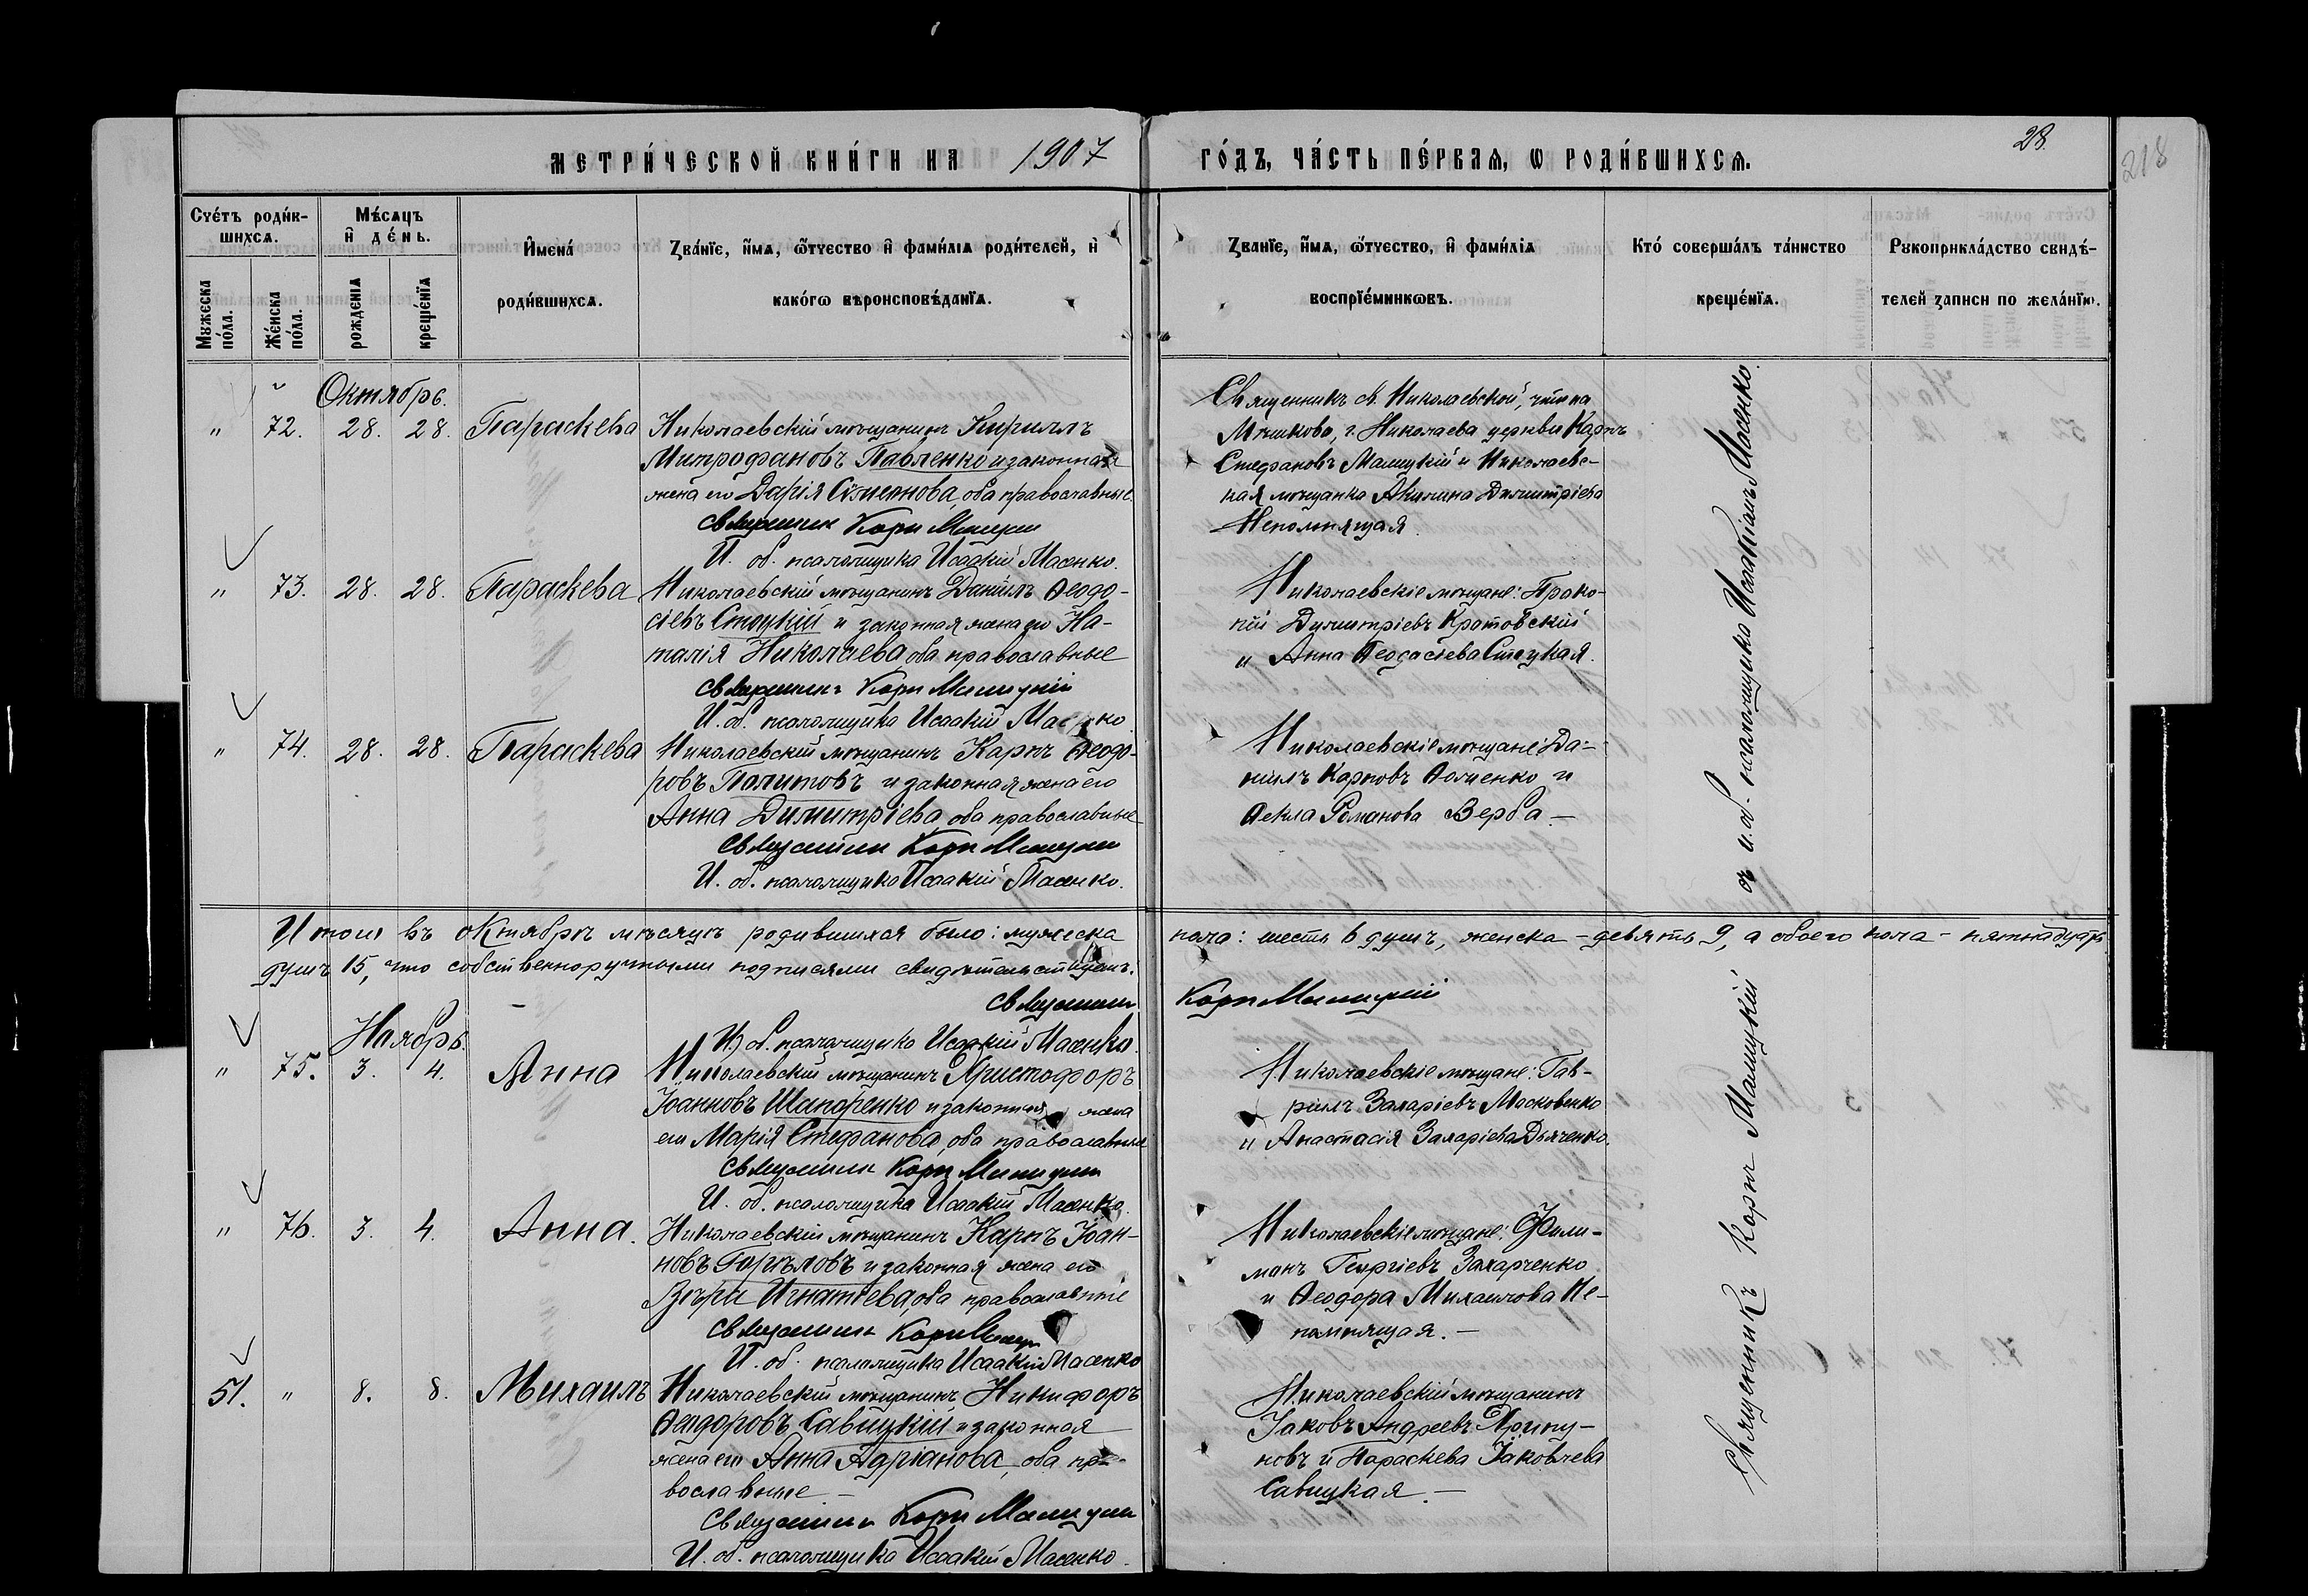 МЕТРИ́ЧЕСКОЙ КНИ́ГИ НА 1907
ГО́ДЪ, ЧА́СТЬ ПЕ́РВАѦ, Ѡ РОДИ́ВШИХСѦ.
28.
218
Сче́тъ роди́в-
шихсѧ.
Мꙋжеска
по́ла.
Же́нска
по́ла.
Мѣ́сѧцъ
и҆ де́нь.
рожденїѧ
креще́нїѧ
И҆мена́
роди́вшихсѧ.
Зва́нїе, и҆́мѧ, ѻ҆́тчество и҆ фами́лїѧ роди́телей, и҆
како́гѡ вѣроисповѣ́данїѧ.
Зва́нїе, и҆́мѧ, ѻ҆́тчество, и҆ фами́лїѧ
воспрїе́мникѡвъ.
Кто́ соверша́лъ та́инство
креще́нїѧ.
Рꙋкоприкла́дство свидѣ́-
телей записи по жела́нїю.
Октябрь.
" 72. 28. 28. Параскева
Николаевскій мѣщанинъ Кириллъ
Митрофановъ Павленко и законная
жена его Дарія Симеонова, оба православные
Священникъ Карпъ Малицкій
И. об. псаломщика Исаакій Масенко.
Священникъ св. Николаевской,
Мѣшково, г. Николаева церкви Карпъ
Стефановъ Малицкій и Николаевс-
кая мѣщанка Акилина Димитріева
Непомнящая.
" 73. 28. 28. Параскева
Николаевскій мѣщанинъ Даніилъ Ѳеодо-
сіевъ Стоцкій и законная жена его На-
талія Николаева оба православные
Священникъ Карпъ Малицкій
И. об. псаломщика Исаакій Масенко
Николаевскіе мѣщане: Проко-
пій Димитріевъ Кротовскій
и Анна Ѳеодосіева Стоцкая.
" 74. 28. 28. Параскева
Николаевскій мѣщанинъ Карпъ Ѳеодо-
ровъ Политовъ и законная жена его
Анна Димитріева оба православные
Священникъ Карпъ Малицкій
И. об. псаломщика Исаакій Масенко.
Николаевскіе мѣщане: Да-
ніилъ Карповъ и
Ѳекла Романова Верба. —
Итого въ октябрѣ мѣсяцѣ родившихся было: мужеска
пола: шесть 6 душъ, женска – девять 9, а обоего пола – пятнадцать
душъ 15, что собственноручными подписями свидѣтельствуемъ.
Священникъ Карпъ Малицкій
И. об. псаломщика Исаакій Масенко.
Ноябрь.
" 75. 3. 4. Анна
Николаевскій мѣщанинъ Христофоръ
Іоанновъ Шапоренко и законная жена
его Марія Стефанова, оба православные
Священникъ Карпъ Малицкій
И. об. псаломщика Исаакій Масенко.
Николаевскіе мѣщане: Гав-
ріилъ Захаріевъ Московенко
и Анастасія Захаріева Дьяченко.
" 76. 3. 4. Анна.
Николаевскій мѣщанинъ Карпъ Іоан-
новъ Горѣловъ и законная жена его
Игнатіева, оба православные
Священникъ Карпъ Малицкій
И. об. псаломщика Исаакій Масенко
Николаевскіе мѣщане: Фили-
монъ Георгіевъ Захарченко
и Ѳеодора Михаилова Не-
помнящая. —
51. " 8. 8. Михаилъ
Николаевскій мѣщанинъ Никифоръ
Ѳеодоровъ Савицкій и законная
жена его Анна Адріанова, оба пра-
вославные. —
Священникъ Карпъ Малицкій
И. об. псаломщика Исаакій Масенко.
Николаевскій мѣщанинъ
Іаковъ Андреевъ Хрипу-
новъ и Параскева Іаковлева
Савицкая. —
Священникъ Карпъ Малицкій
съ и. об. псаломщика Исаакіемъ Масенко.